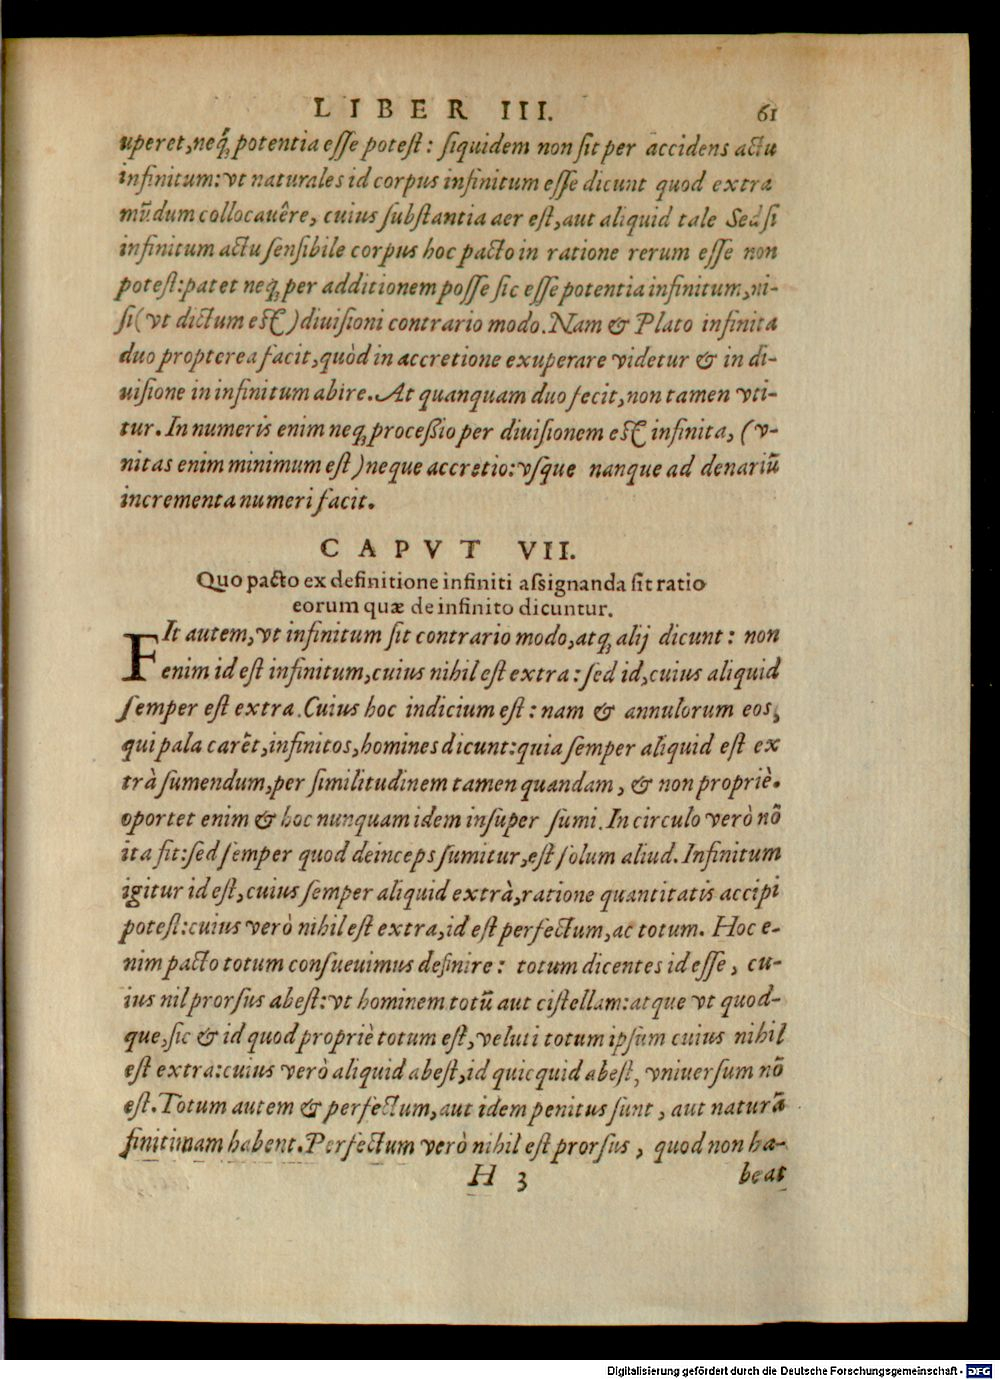 LIBER III. 61
uperet, neq; potentia esse potest: siquidem non sit per accidens actu
infinitum: vt naturales id corpus infinitum esse dicunt quod extra
mũdum collocauêre, cuius substantia aer est, aut aliquid tale Sed si
infinitum actu sensibile corpus hoc pacto in ratione rerum esse non
potest: patet neq; per additionem posse sic esse potentia infinitum, ni-
si (vt dictum est) diuisioni contrario modo. Nam & Plato infinita
duo propterea facit, quòd in accretione exuperare videtur & in di-
uisione in infinitum abire. At quanquam duo fecit, non tamen vti-
tur. In numeris enim neq; processio per diuisionem est infinita, (v-
nitas enim minimum est) neque accretio: vsque nanque ad denariũ
incrementa numeri facit.
CAPVT VII.
Quo pacto ex definitione infiniti assignanda sit ratio
eorum quæ de infinito dicuntur.
FIt autem, vt infinitum sit contrario modo, atq; alij dicunt: non
enim id est infinitum, cuius nihil est extra: sed id, cuius aliquid
semper est extra. Cuius hoc indicium est: nam & annulorum eos,
qui pala carẽt, infinitos, homines dicunt: quia semper aliquid est ex
trà sumendum, per similitudinem tamen quandam, & non propriè.
oportet enim & hoc nunquam idem insuper sumi. In circulo verò nõ
ita fit: sed semper quod deinceps sumitur, est solum aliud. Infinitum
igitur id est, cuius semper aliquid extrà, ratione quantitatis accipi
potest: cuius verò nihil est extra, id est perfectum, ac totum. Hoc e-
nim pacto totum consueuimus definire: totum dicentes id esse, cu-
ius nil prorsus abest: vt hominem totũ aut cistellam: atque vt quod-
que, sic & id quod propriè totum est, veluti totum ipsum cuius nihil
est extra: cuius verò aliquid abest, id quicquid abest, vniuersum nõ
est. Totum autem & perfectum, aut idem penitus sunt, aut naturã
finitimam habent. Perfectum verò nihil est prorsus, quod non ha-
H 3 beat
Digitalisierung gefördert durch die Deutsche Forschungsgemeinschaft - DFG